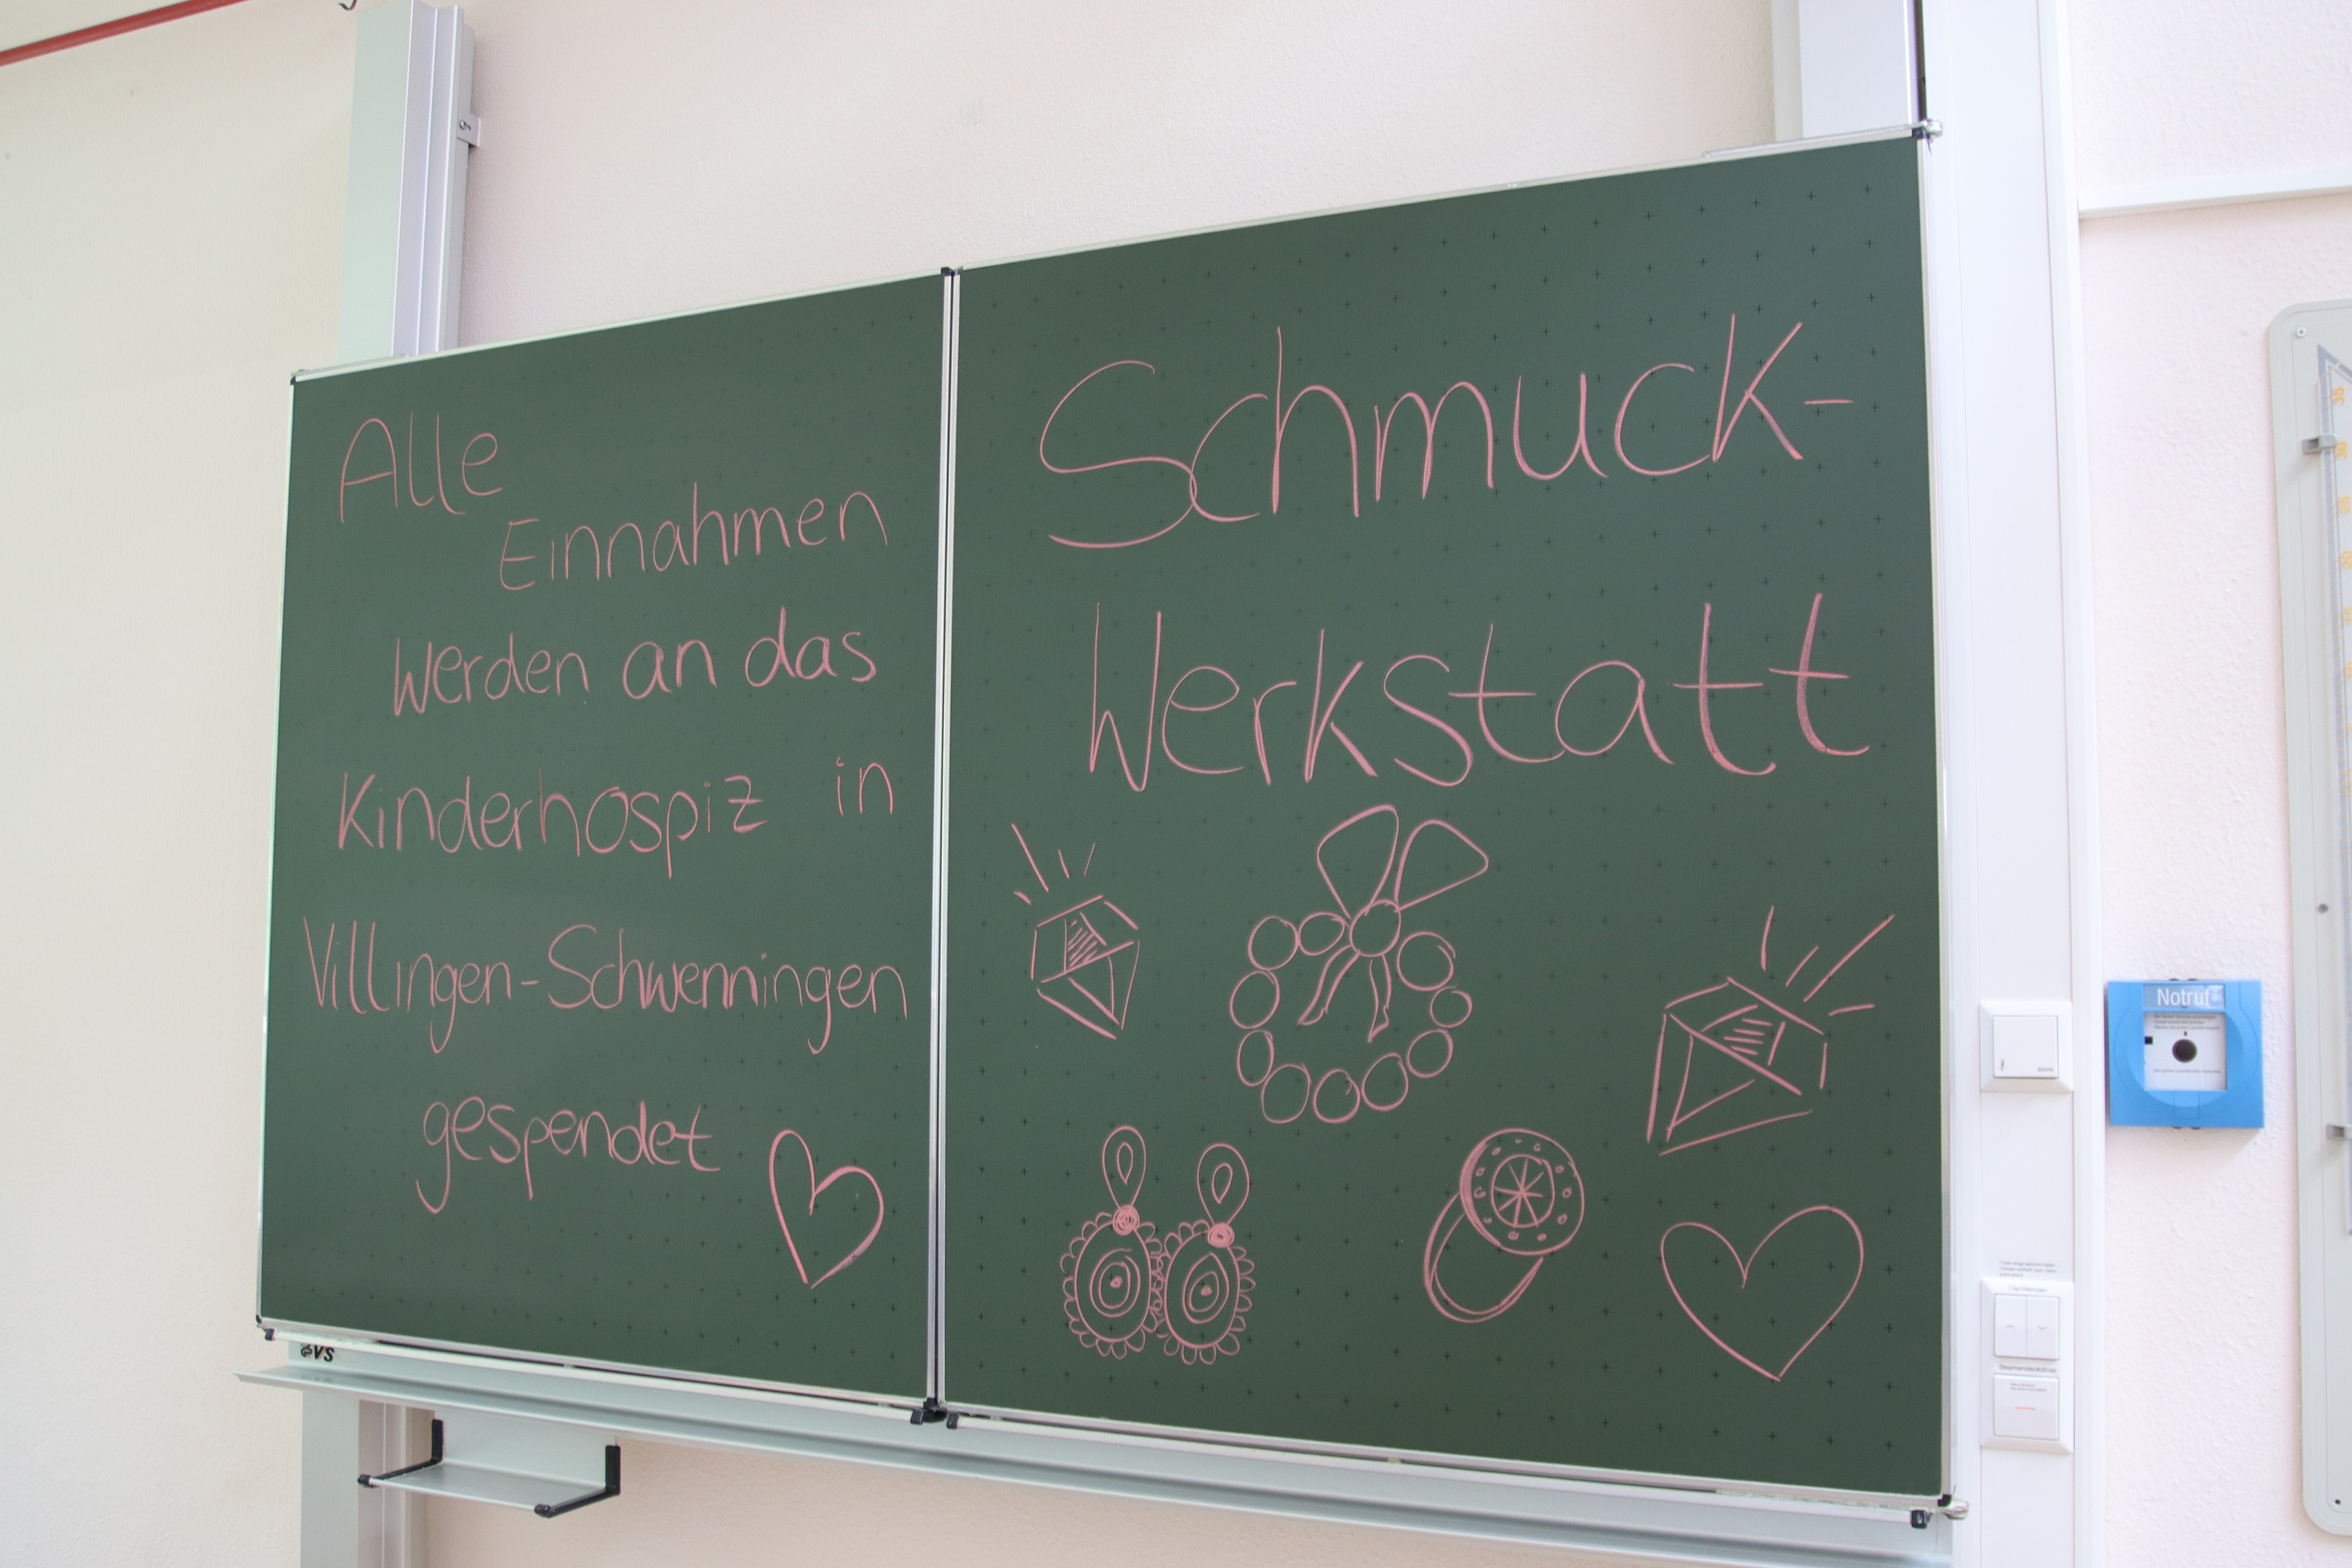 Alle
Einnahmen
werden an das
Kinderhospiz in
Villingen-Schwenningen
gespendet
Schmuck-
Werkstatt
VS
Notruf